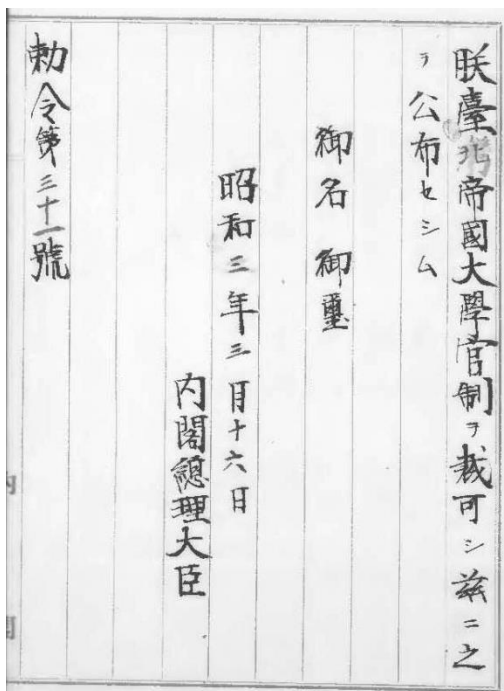 朕臺北帝國大學官制ヲ裁可シ茲ニ之
ヲ公布セシム
御名御璽
昭和三年三月十六日
内閣總理大臣
勅令第三十一號